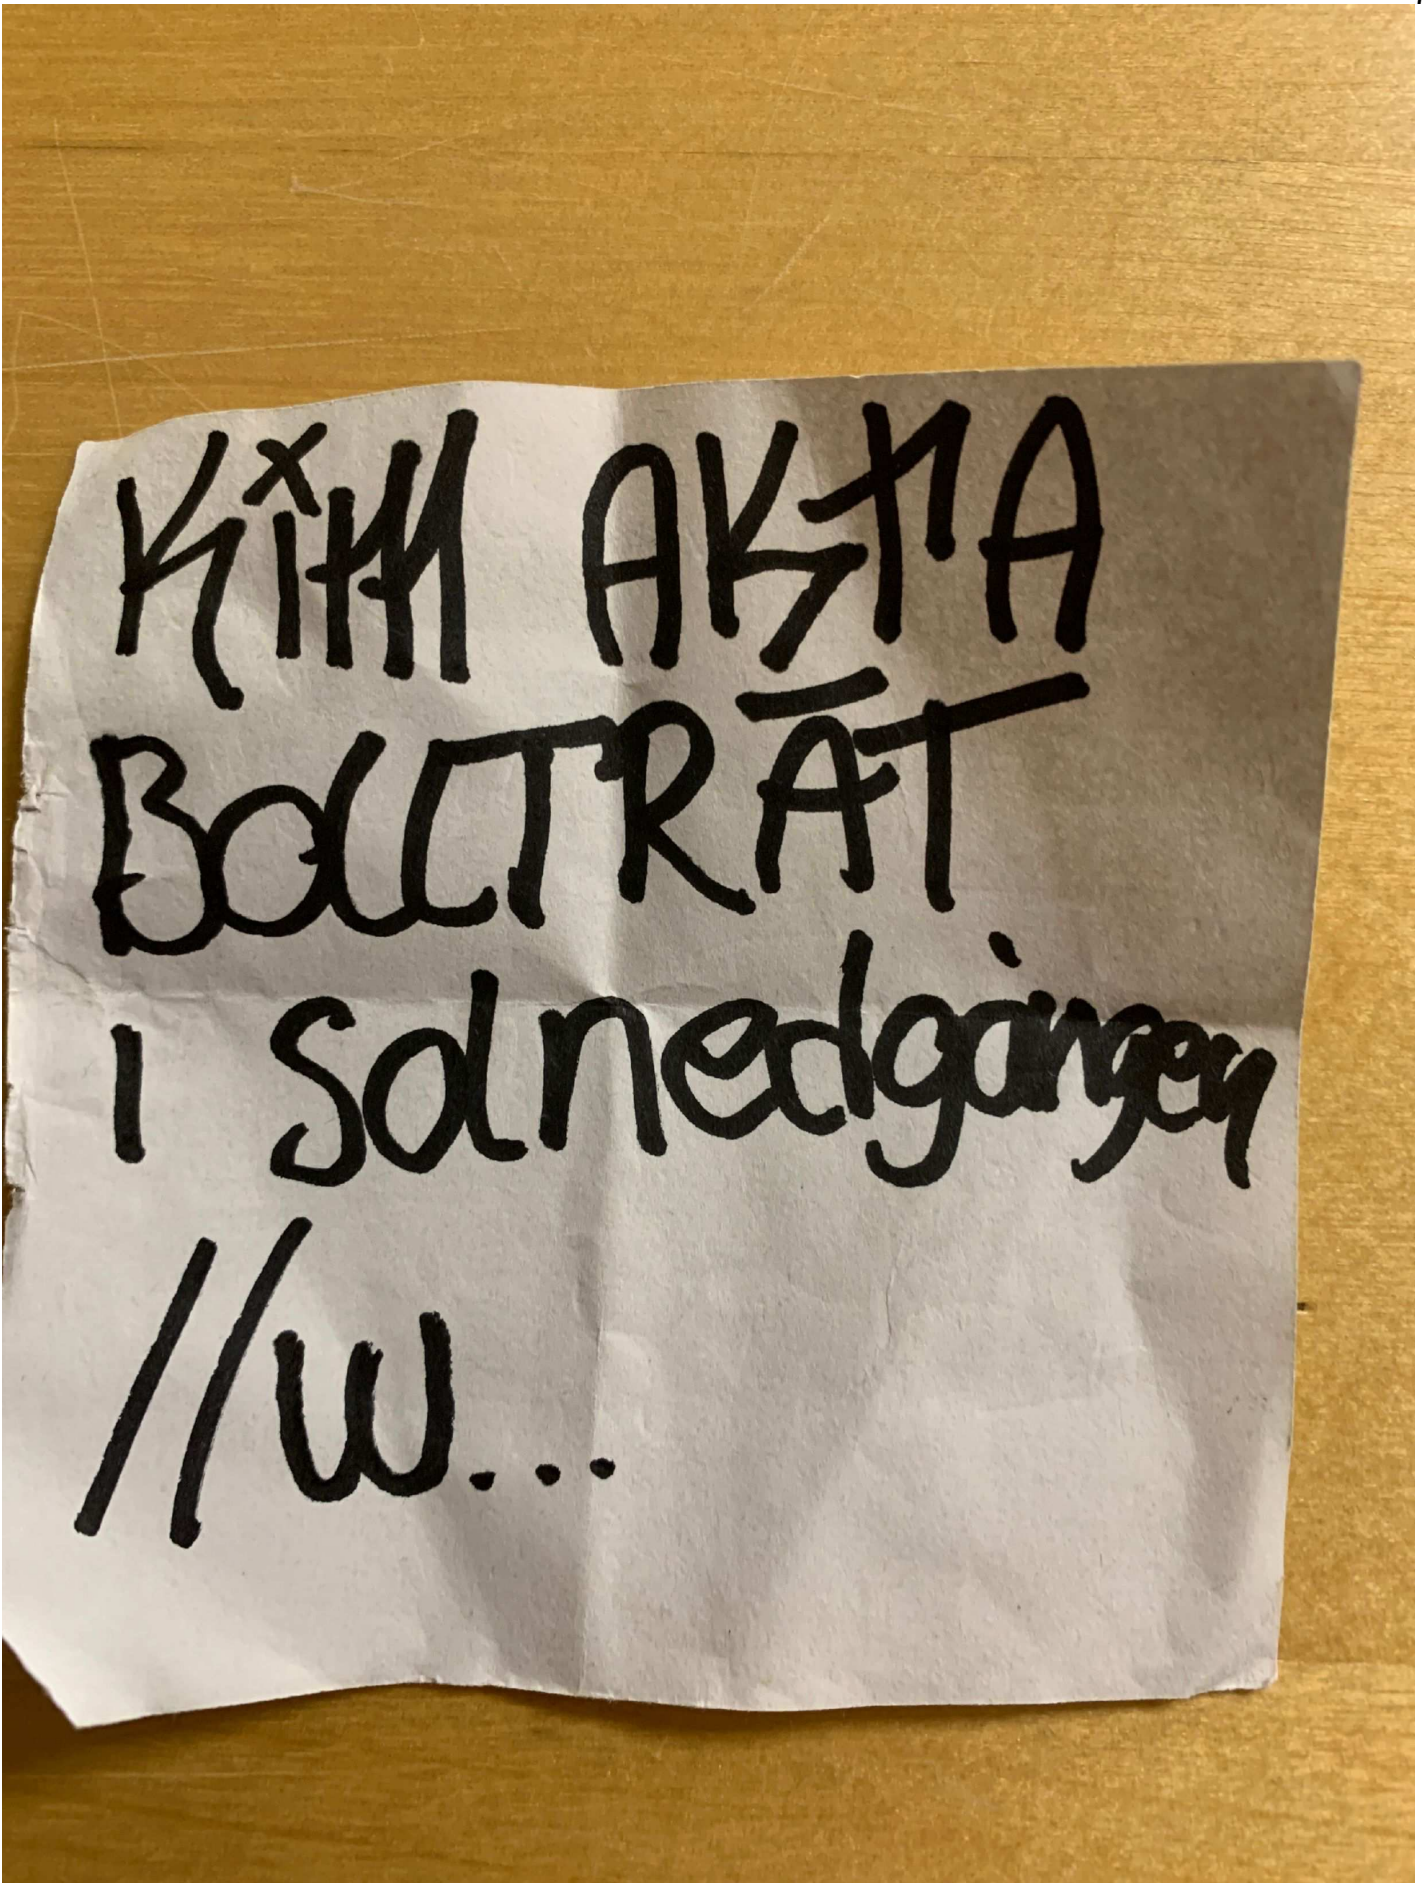 Kim AKTA
BOLLTRÄT
i solnedgången
//W...